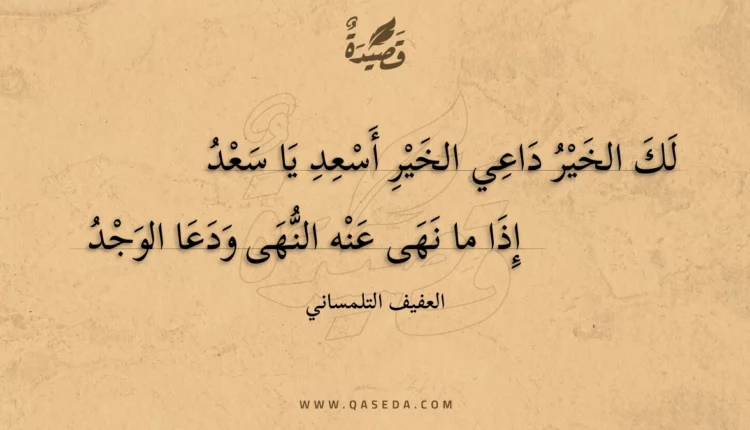 قَصِيدَةٌ
لَكَ الخَيْرُ دَاعِي الخَيْرِ أَسْعِدِ يَا سَعْدُ
إِذَا ما نَهَى عَنْه النُّهَى وَدَعَا الوَجْدُ
العفيف التلمساني
WWW.QASEDA.COM